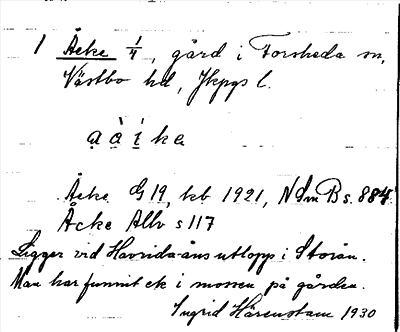 1 Åeke 1/4, gård i Forsheda sn,
Västbo hd, Jkpgs l.
a à i ke
Åeke G 19, kb 1921, NdmB s. 884.
Åcke Allv s 117
Ligger vid Havrida-åns utlopp i Storån.
Man har funnit ek i mossen på gården.
Ingrid Härenstam 1930